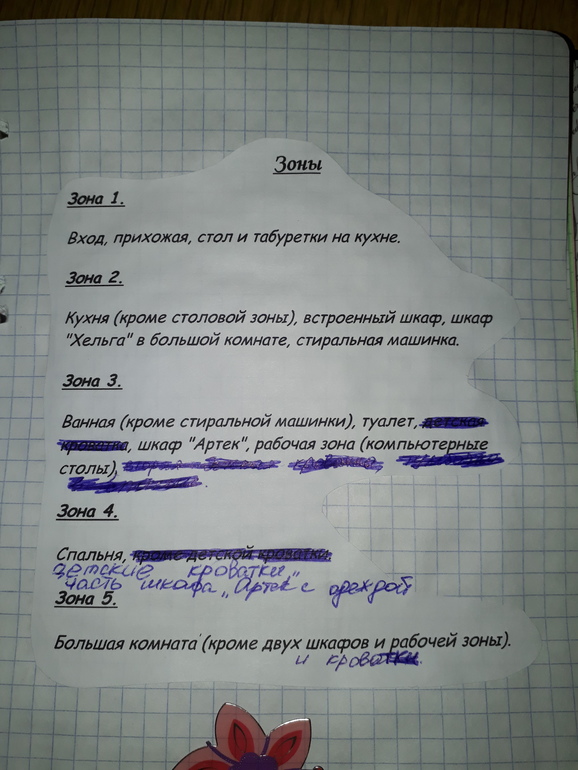 Зоны
Зона 1.
Вход, прихожая, стол и табуретки на кухне.
Зона 2.
Кухня (кроме столовой зоны), встроенный шкаф, шкаф
"Хельга" в большой комнате, стиральная машинка.
Зона 3.
Ванная (кроме стиральной машинки), туалет, детская
кроватка, шкаф "Артек", рабочая зона (компьютерные
столы),
Зона 4.
Спальня, кроме детской кроватки
детские кроватки,
часть шкафа "Артек" с одеждой
Зона 5.
Большая комната (кроме двух шкафов и рабочей зоны).
и кроватки.